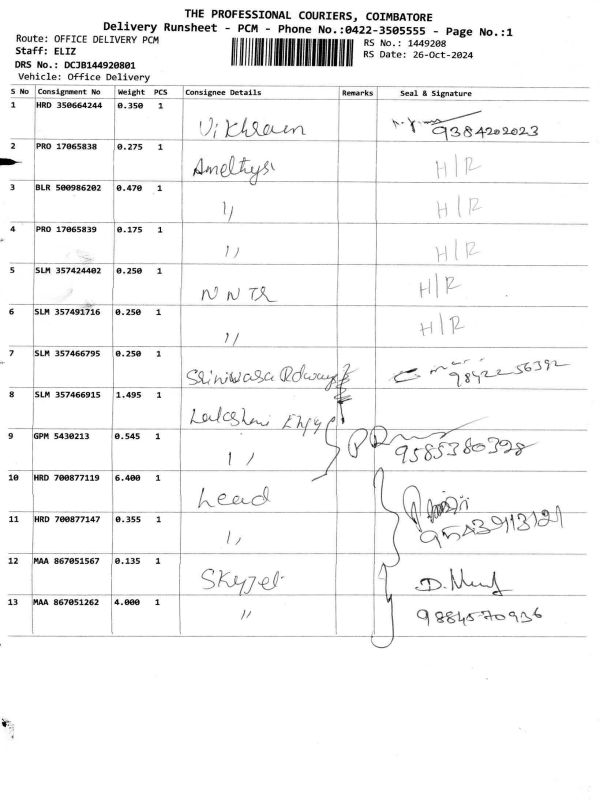 THE PROFESSIONAL COURIERS, COIMBATORE
Delivery Runsheet - PCM - Phone No.:0422-3505555 - Page No.:1
Route: OFFICE DELIVERY PCM
Staff: ELIZ
DRS No.: DCJB144920801
Vehicle: Office Delivery
RS No.: 1449208
RS Date: 26-Oct-2024
S No Consignment No Weight PCS Consignee Details Remarks Seal & Signature
1 HRD 350664244 0.350 1 Vikhram 9384202023
2 PRO 17065838 0.275 1 Amethyst H/R
3 BLR 500986202 0.470 1 ,, H/R
4 PRO 17065839 0.175 1 ,, H/R
5 SLM 357424402 0.250 1 H/R
6 SLM 357491716 0.250 1 ,, H/R
7 SLM 357466795 0.250 1 Srinivasa 9842256392
8 SLM 357466915 1.495 1 Lakshmi Engg
9 GPM 5430213 0.545 1 ,, 9585380398
10 HRD 700877119 6.400 1 Lead
11 HRD 700877147 0.355 1 ,, 9543913121
12 MAA 867051567 0.135 1 Skyjet
13 MAA 867051262 4.000 1 ,, 9884570936